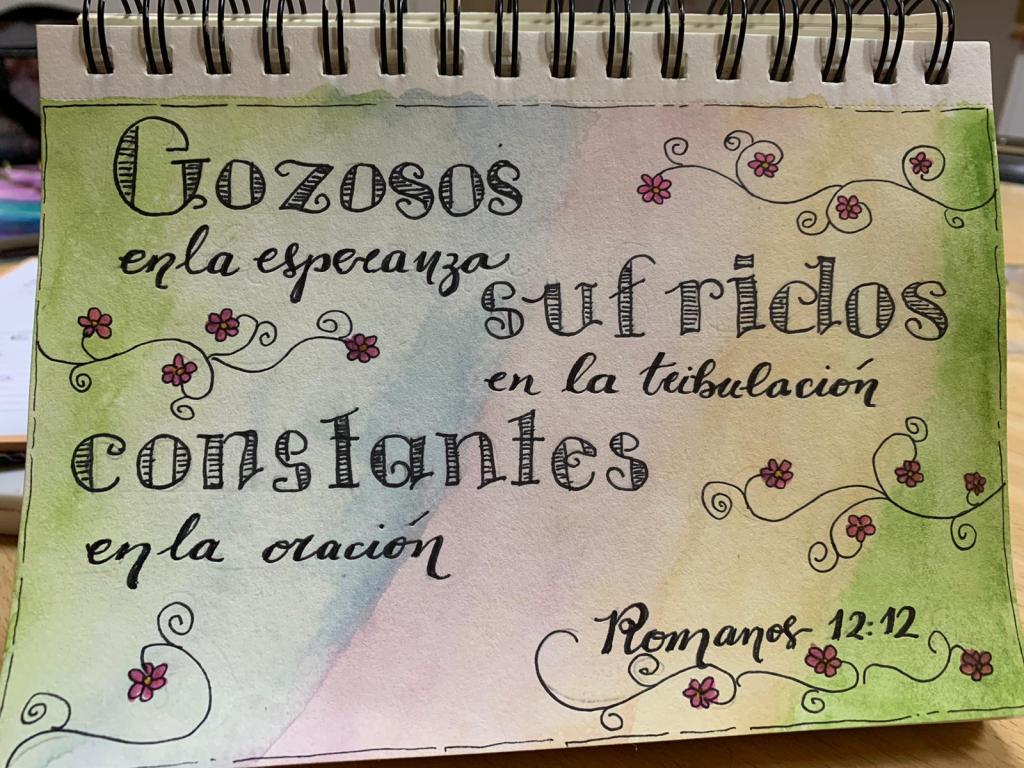 Gozosos
en la esperanza
sufridos
en la tribulación
constantes
en la oración
Romanos 12:12